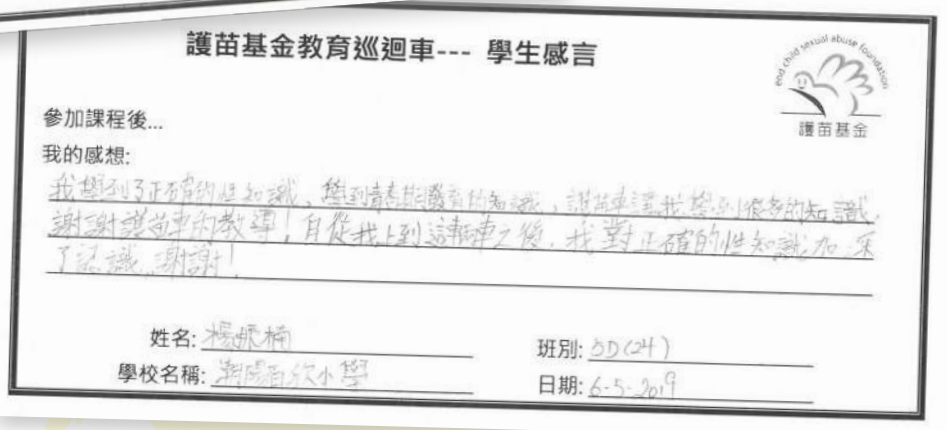 護苗基金教育巡迴車--- 學生感言
end child sexual abuse foundation
護苗基金
參加課程後...
我的感想:
我學到了正確的性知識、學到青春期發育的知識，護苗車讓我學到很多的知識，
謝謝護苗車的教導！自從我上到這輛車之後，我對正確的性知識加深
了認識，謝謝！
姓名: 楊
班別: 5D(24)
學校名稱: 潮陽百欣小學
日期: 6-5-2019